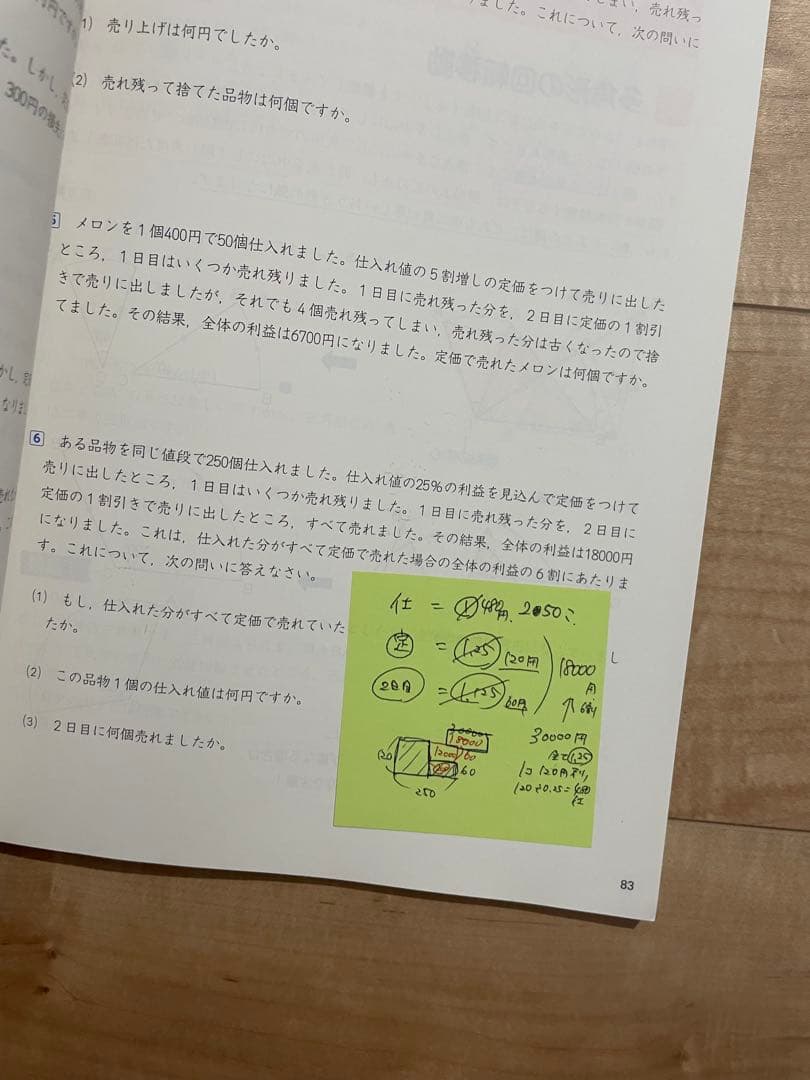 い，売れ残っ
ました。これについて，次の問いに
1) 売り上げは何円でしたか。
(2) 売れ残って捨てた品物は何個ですか。
た。しかし，
300円の
多角形の回転移動
5 メロンを１個400円で50個仕入れました。仕入れ値の５割増しの定価をつけて売りに出した
ところ，１日目はいくつか売れ残りました。１日目に売れ残った分を，２日目に定価の１割引
きで売りに出しましたが，それでも４個売れ残ってしまい，売れ残った分は古くなったので捨
てました。その結果，全体の利益は6700円になりました。定価で売れたメロンは何個ですか。
6 ある品物を同じ値段で250個仕入れました。仕入れ値の25%の利益を見込んで定価をつけて
売りに出したところ，１日目はいくつか売れ残りました。１日目に売れ残った分を，２日目に
定価の１割引きで売りに出したところ，すべて売れました。その結果，全体の利益は18000円
になりました。これは，仕入れた分がすべて定価で売れた場合の全体の利益の６割にあたりま
す。これについて，次の問いに答えなさい。
(1) もし，仕入れた分がすべて定価で売れていた
し
たか。
(2) この品物１個の仕入れ値は何円ですか。
(3) ２日目に何個売れましたか。
仕 = ① 480円. 250こ
定 = 1.25 120円
2日目 = 1.25 60円
18000円
↑6割
30000円
全て1.25
1コ120円
120÷0.25=480
仕
30000
18000
12000
60
120
60
250
83